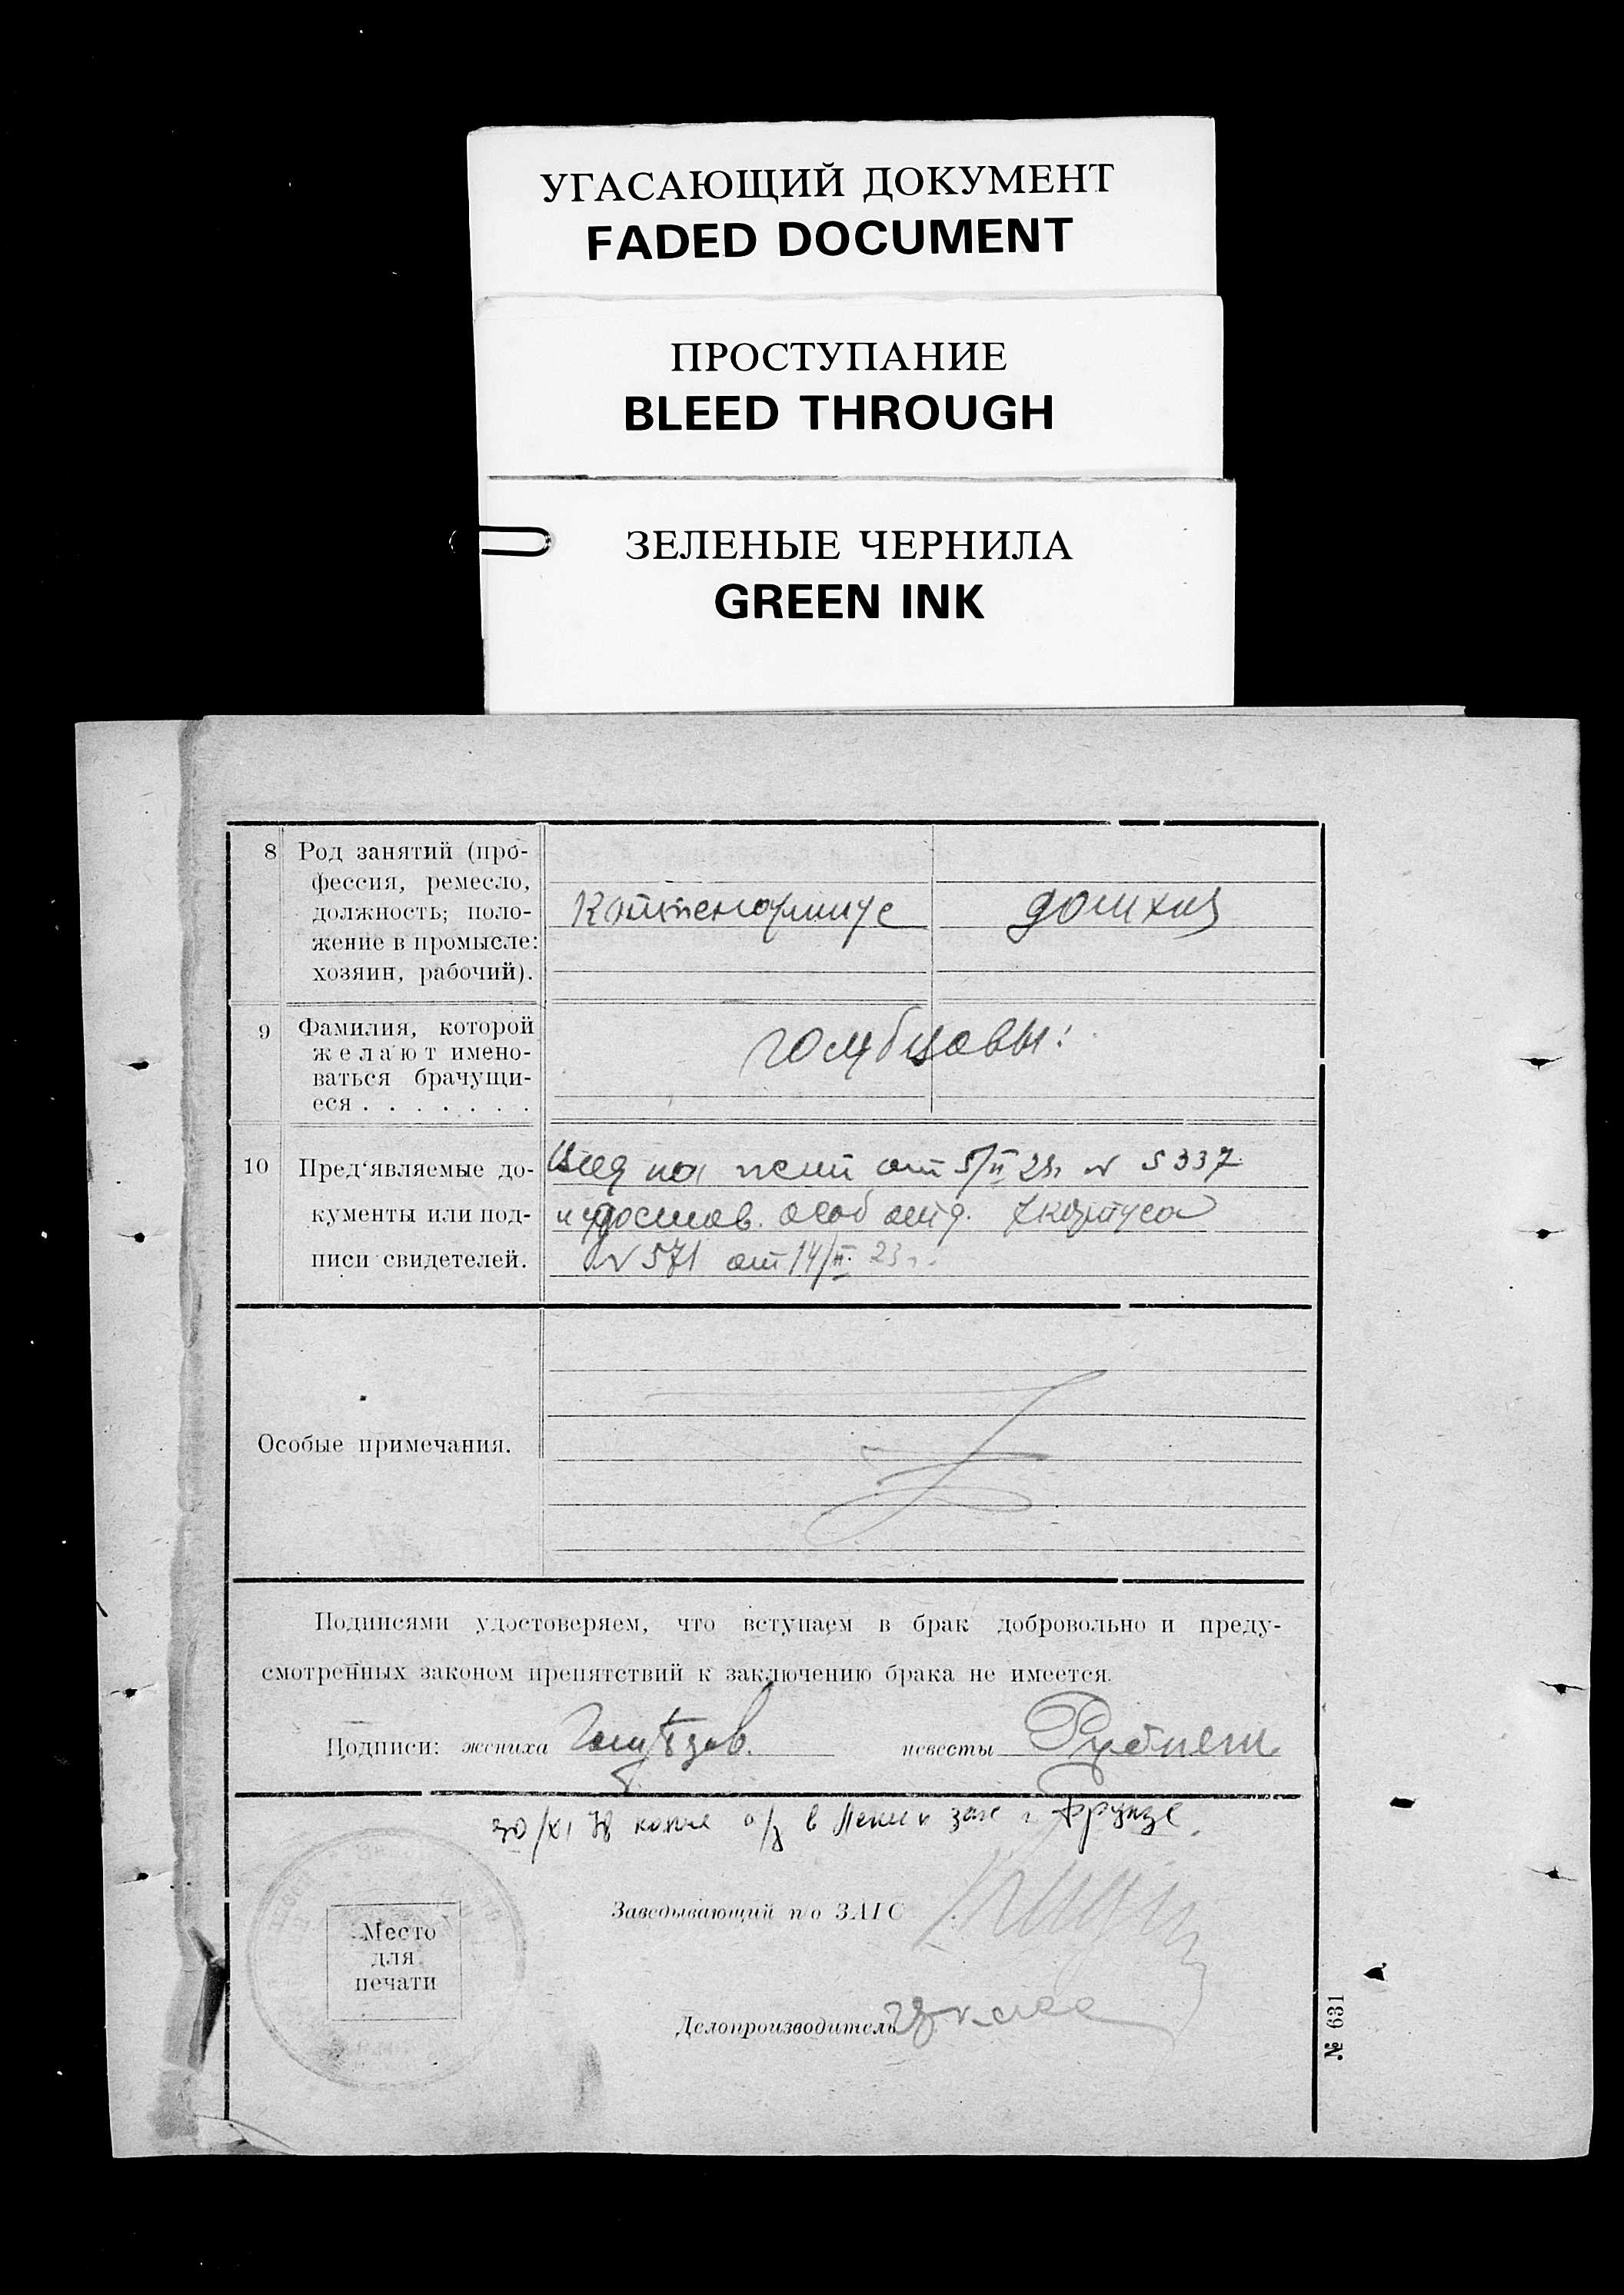 УГАСАЮЩИЙ ДОКУМЕНТ
FADED DOCUMENT
ПРОСТУПАНИЕ
BLEED THROUGH
ЗЕЛЕНЫЕ ЧЕРНИЛА
GREEN INK
8 Род занятий (про-
фессия, ремесло,
должность; поло-
жение в промысле:
хозяин, рабочий).
домхоз
9 Фамилия, которой
желают имено-
ваться брачущи-
еся . . . . . . .
10 Пред'являемые до-
кументы или под-
писи свидетелей.
от 5/II 23г № 5337
и удостов. особ отд. 7 корпуса
№ 571 от 14/II 23 г.
Особые примечания.
Подписями удостоверяем, что вступаем в брак добровольно и преду-
смотренных законом препятствий к заключению брака не имеется.
Подписи: жениха невесты
30/XI 78 в Ленин загс г. Фрунзе.
Заведывающий п/о ЗАГС
Место
для
печати
Делопроизводитель
№ 631